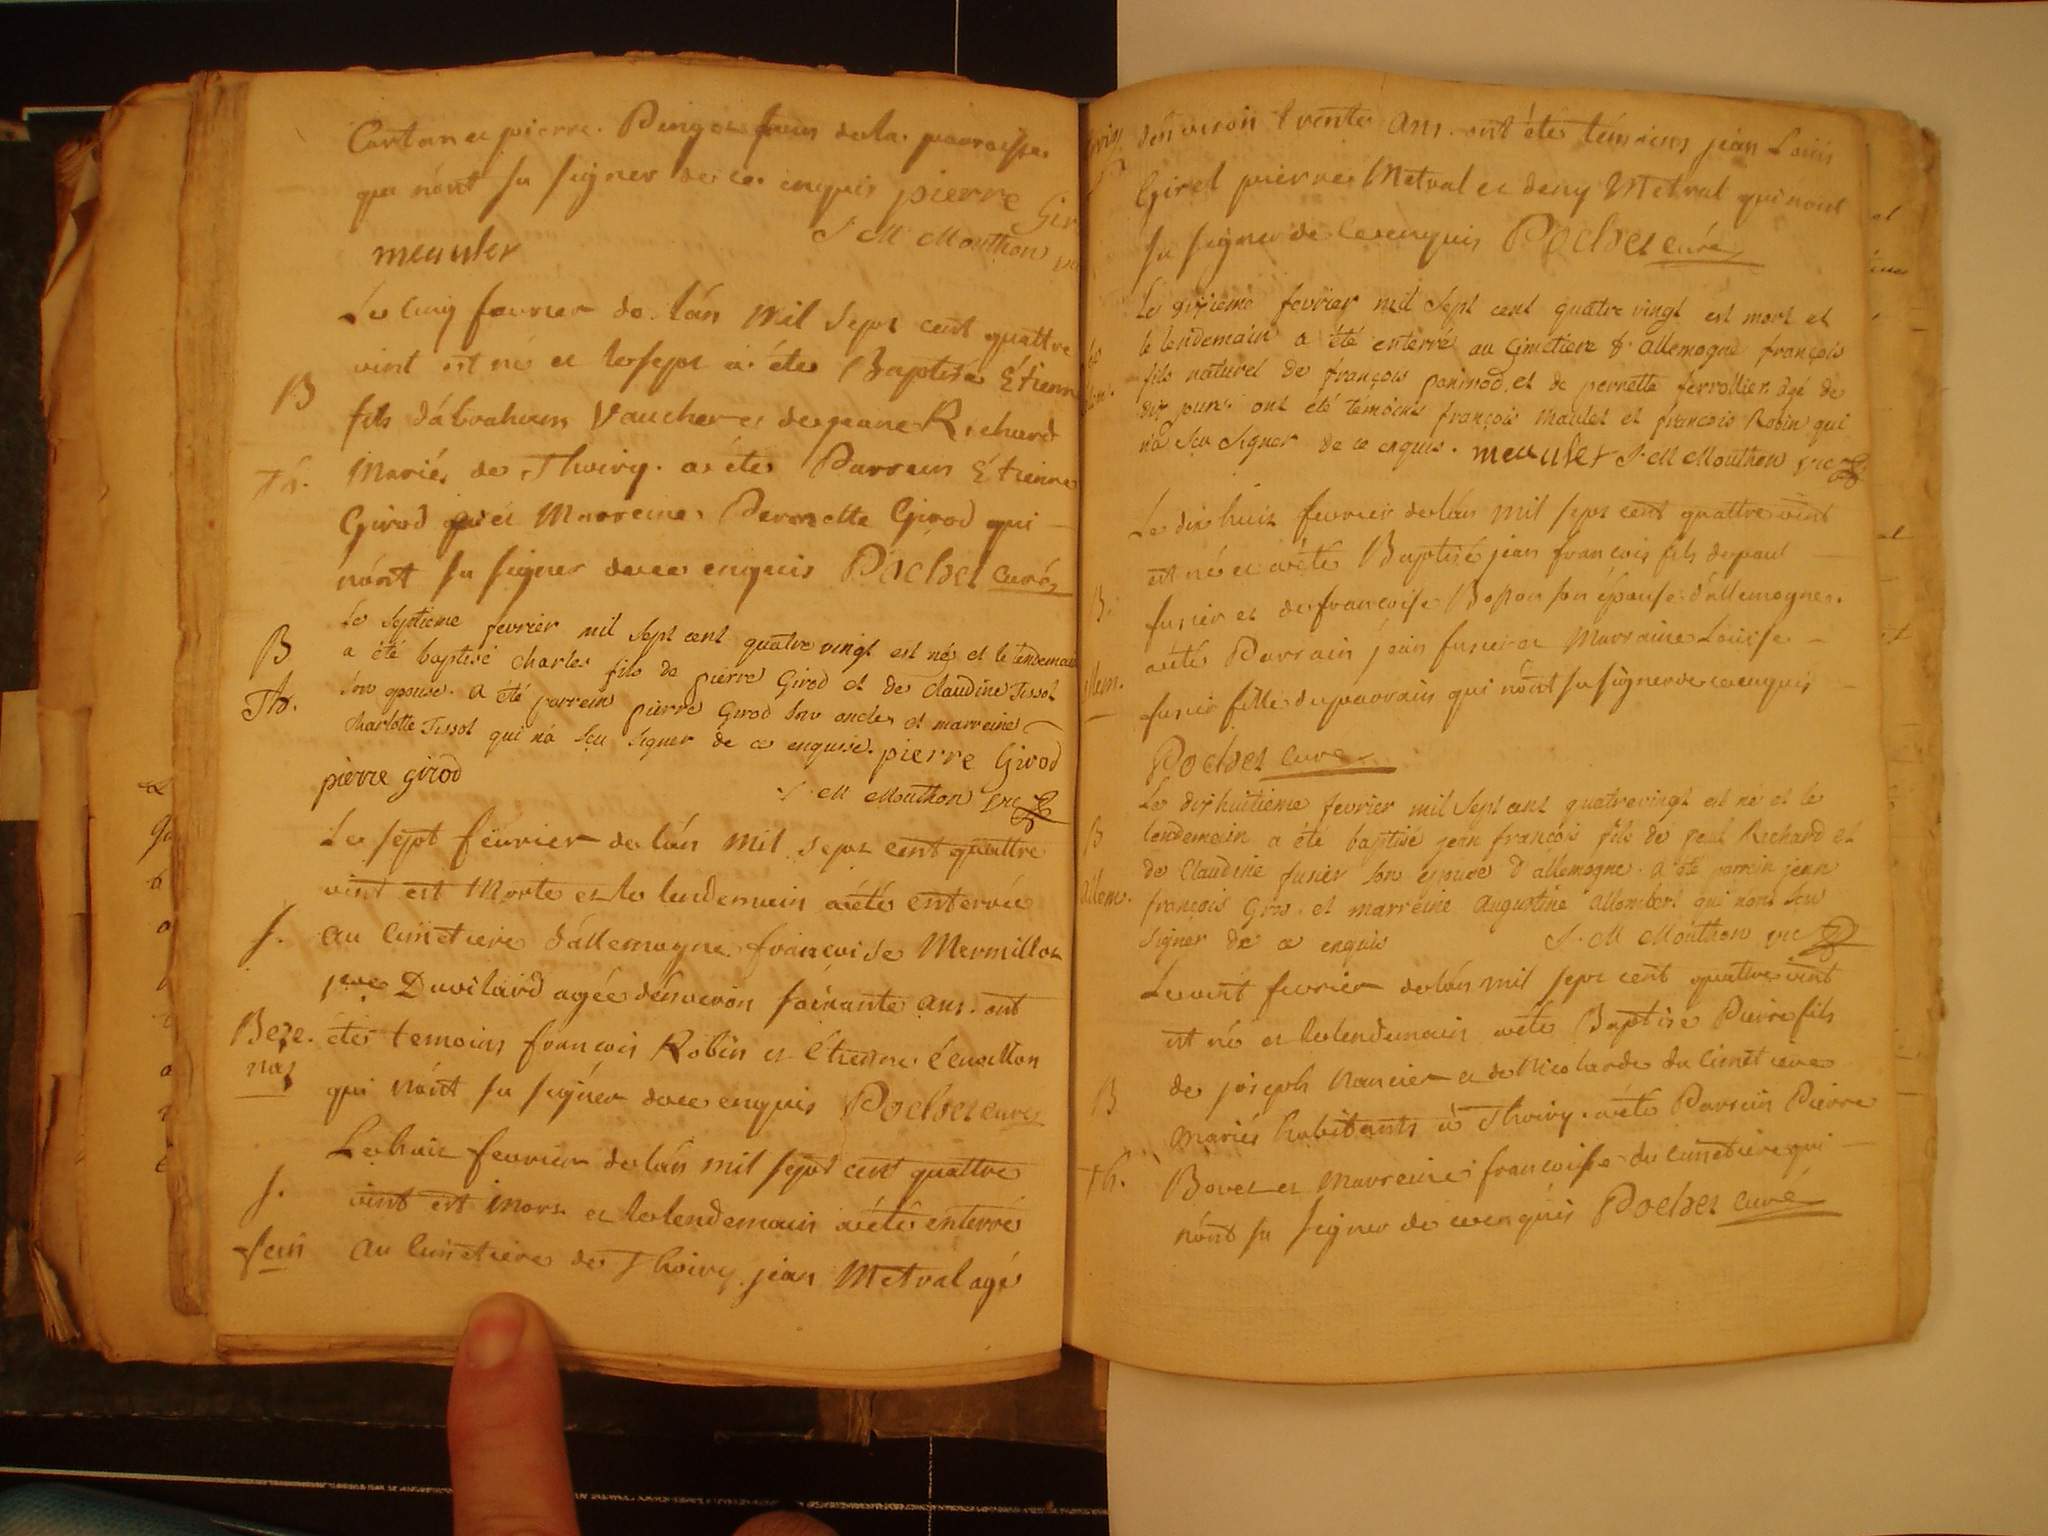 Cartan et pierre Pinget tous de la parroisse
qui nónt su signer de ce enquis pierre Gir
meauler J M Mouthon vic
Le cinq fevrier de lán mil sept cent quattre
vint est né et le sept a été Baptisé Étienne
B
fils dábraham Vaucher et de jeane Richard
Th. Mariés de Thoiry. a été Parrain Étienne
Girod et Marreine Pernette Girod qui
nónt su signer de ce enquis Pochet curé
Le septieme fevrier mil sept cent quatre vingt est né et le lendemain
B a été baptisé charles fils de pierre Girod et de claudine Tissot
Th. son epouse. a été parrein pierre Girod son oncle et marreine
charlotte Tissot qui ná sçu signer de ce enquise. pierre Girod
pierre girod J M Mouthon vic
Le sept fevrier de lán mil sept cent quattre
vint est Morte et le lendemain aété enterrée
S. au cimetiere dállemogne francoise Mermillot
Duvilard agée dénviron soixante ans. ont
Beze. étés temoins francois Robin et Etienne
nas
qui nónt su signer de ce enquis Pochet curé
Le huit fevrier de lán mil sept cent quattre
S. vint est mort et le lendemain aété enterré
au cimetiere de Thoiry jean Metral agé
dénviron trente ans. ont étés témoins jean Louis
Girel pierre Metral et deny Metral qui nont
su signer de ce enquis Pochet curé
Le dixieme fevrier mil sept cent quatre vingt est mort et
le lendemain a été enterré au cimetiere d'allemogne françois
fils naturel de françois panissod et de pernette ferrollier agé de
dix jours. ont eté témoins françois maulet et francois Robin qui
ná sçu signer de ce enquis. meauler J. M Mouthon vic
Le dix huit fevrier de lán mil sept cent quattre vint
est né et aété Baptisé jean francois fils de paul
B. fusier et de francoise Bosson son épouse dállemogne.
aété Parrain jean fusier et Marraine Louise
llem.
fusier fille du parrain qui nónt su signer de ce enquis
Pochet curé
Le dix huitieme fevrier mil sept cent quatrevingt est né et le
B lendemain a été baptisé jean françois fils de paul Richard et
de Claudine fusier son epouse d'allemogne. a été parrein jean
allem. françois Gros. et marreine Augustine Allombert qui nónt sçu
signer de ce enquis J. M Mouthon vic
Le vint fevrier de lán mil sept cent quattre vint
est né et le lendemain aété Baptisé Pierre fils
de joseph Mancier et de Nicolarde du Cimetiere
B
Mariés habitants à Thoiry. aété Parrain Pierre
Th. Bovet et Marreine francoise du cimetiere qui
nónt su signer de ce enquis Pochet curé